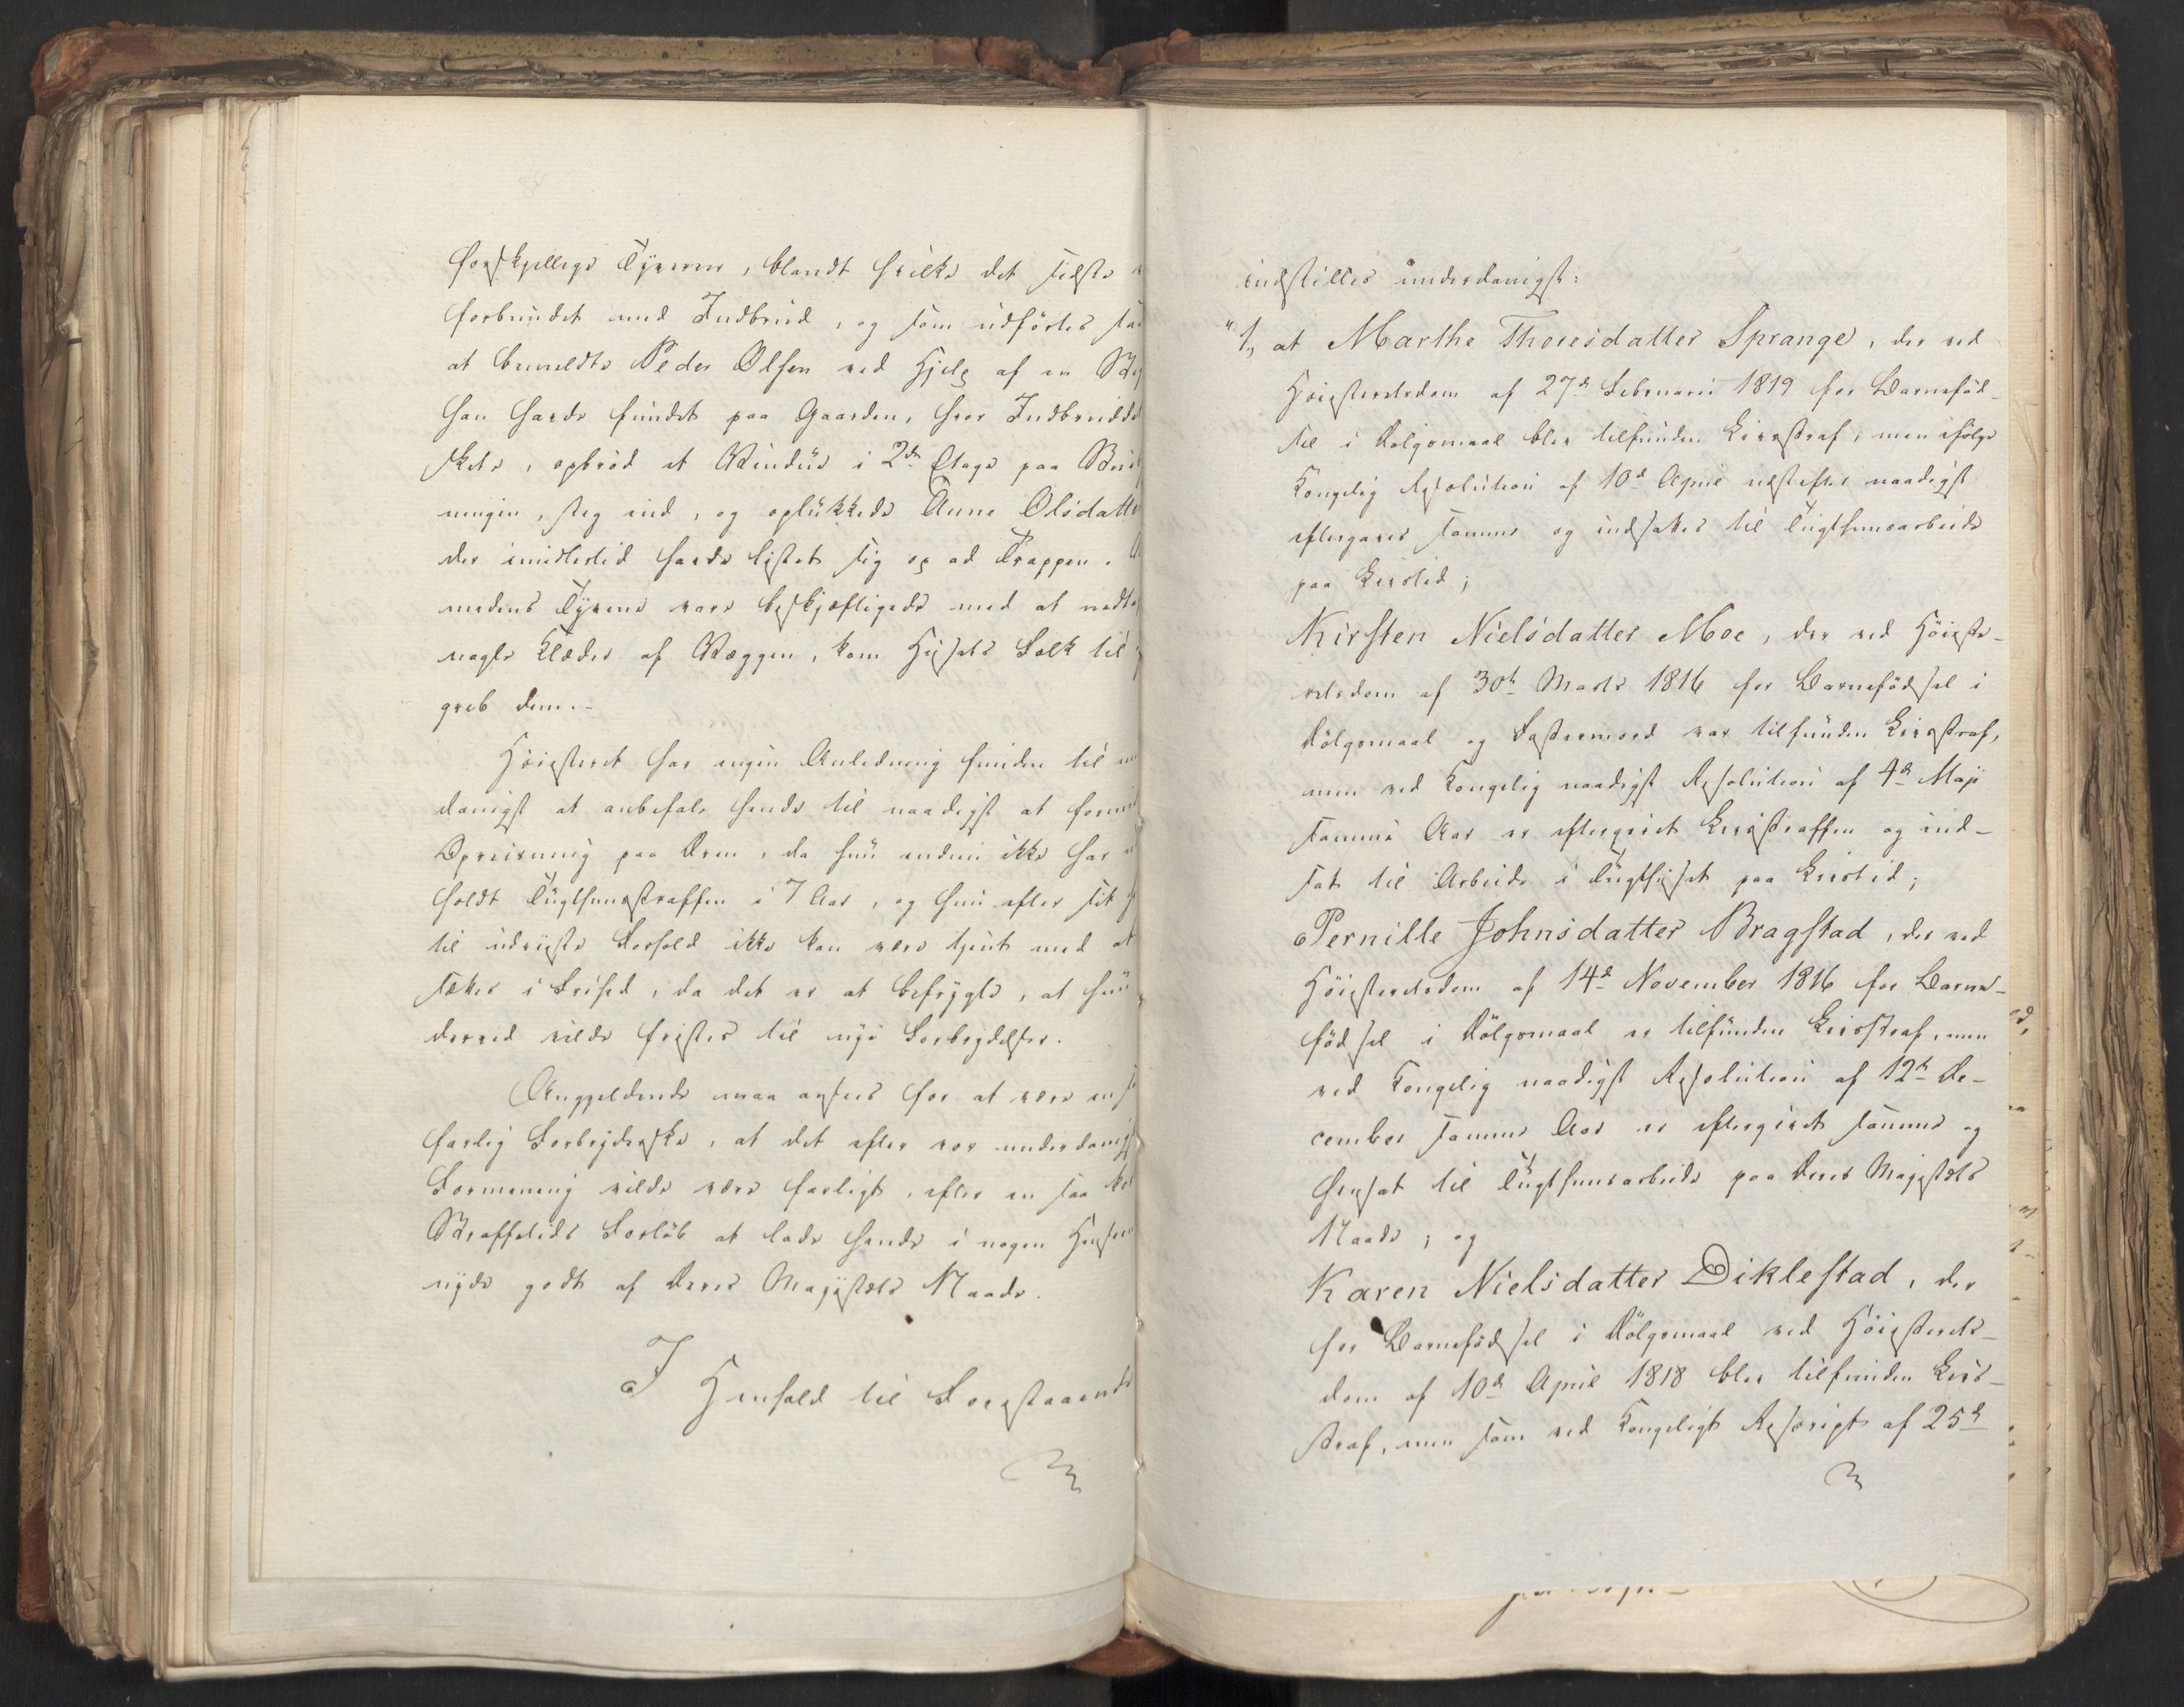 forskjellige Tyverier, blandt hvilke det sidste
forbundet med Indbrud, og som udførtes saa
at bemeldte Peder Olsen ved Hjelp af en
han havde fundet paa Gaarden, hvor Indbruddet
skete, opbrød et Vindue i 2den Etage paa
ningen, steg ind, og oplukkede Anne Olsdatter
der imidlertid havde listet sig op ad Trappen.
medens Tyvene vare beskjæftigede med at nedta
nogle Klæder af Væggen, kom Husets Folk til
greb dem.-
Høiesteret har ingen Anledning funden til
danigst at anbefale hende til naadigst at
Opreisning paa Ære, da hun endnu ikke har
holdt Tugthuusstraffen i 7 Aar, og hun efter sit
til udviiste Forhold ikke kan være tjent med at
sættes i Frihed, da det er at befrygte, at hun
derved vilde fristes til nye Forbrydelser.
Angjeldende maa ansees for at være en
farlig Forbryderske, at det efter vor underdanigst
Formening vilde være farligt, efter en saa
Straffetids Forløb at lade hende i nogen
nyde godt af Deres Majestæts Naade.
I Henhold til Forestaaende
indstilles underdanigst:
"1, at Marthe Thoresdatter Sprange, der ved
Høiesteretsdom af 27de Februarii 1819 for Barnefød-
sel i Dølgsmaal blev tilfunden Livsstraf, men ifølge
Kongelig Resolution af 10de April næstefter naadigst
eftergaves samme og indsattes til Tugthuusarbeide
paa Livstid;
Kirsten Nielsdatter Moe, der ved Høieste-
retsdom af 30te Marts 1816 for Barnefødsel i
Dølgsmaal og Fostermord var tilfunden Livsstraf,
men ved Kongelig naadigst Resolution af 4de Maji
samme Aar er eftergivet Livsstraffen og ind-
sat til Arbeide i Tugthuset paa Livstid;
Pernille Johnsdatter Bragstad, der ved
Høiesteretsdom af 14de November 1816 for Barne-
fødsel i Dølgsmaal er tilfunden Livsstraf, men
ved Kongelig naadigst Resolution af 12te De-
cember samme Aar er eftergivet samme og
hensat til Tugthuusarbeide paa Deres Majestæts
Naade; og
Karen Nielsdatter Diklestad, der
for Barnefødsel i Dølgsmaal ved Høiesterets-
dom af 10de April 1818 blev tilfunden Livs-
straf, men som ved Kongeligt Rescript af 25de